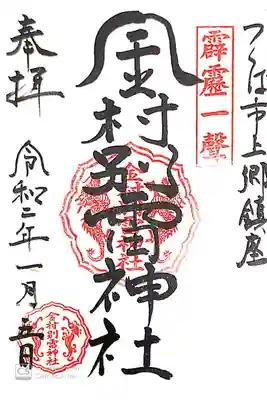 つくば市上郷鎮座
霹靂一聲
金村別雷神社
金村別雷神社
奉拝
令和二年一月五日
金村別雷神社